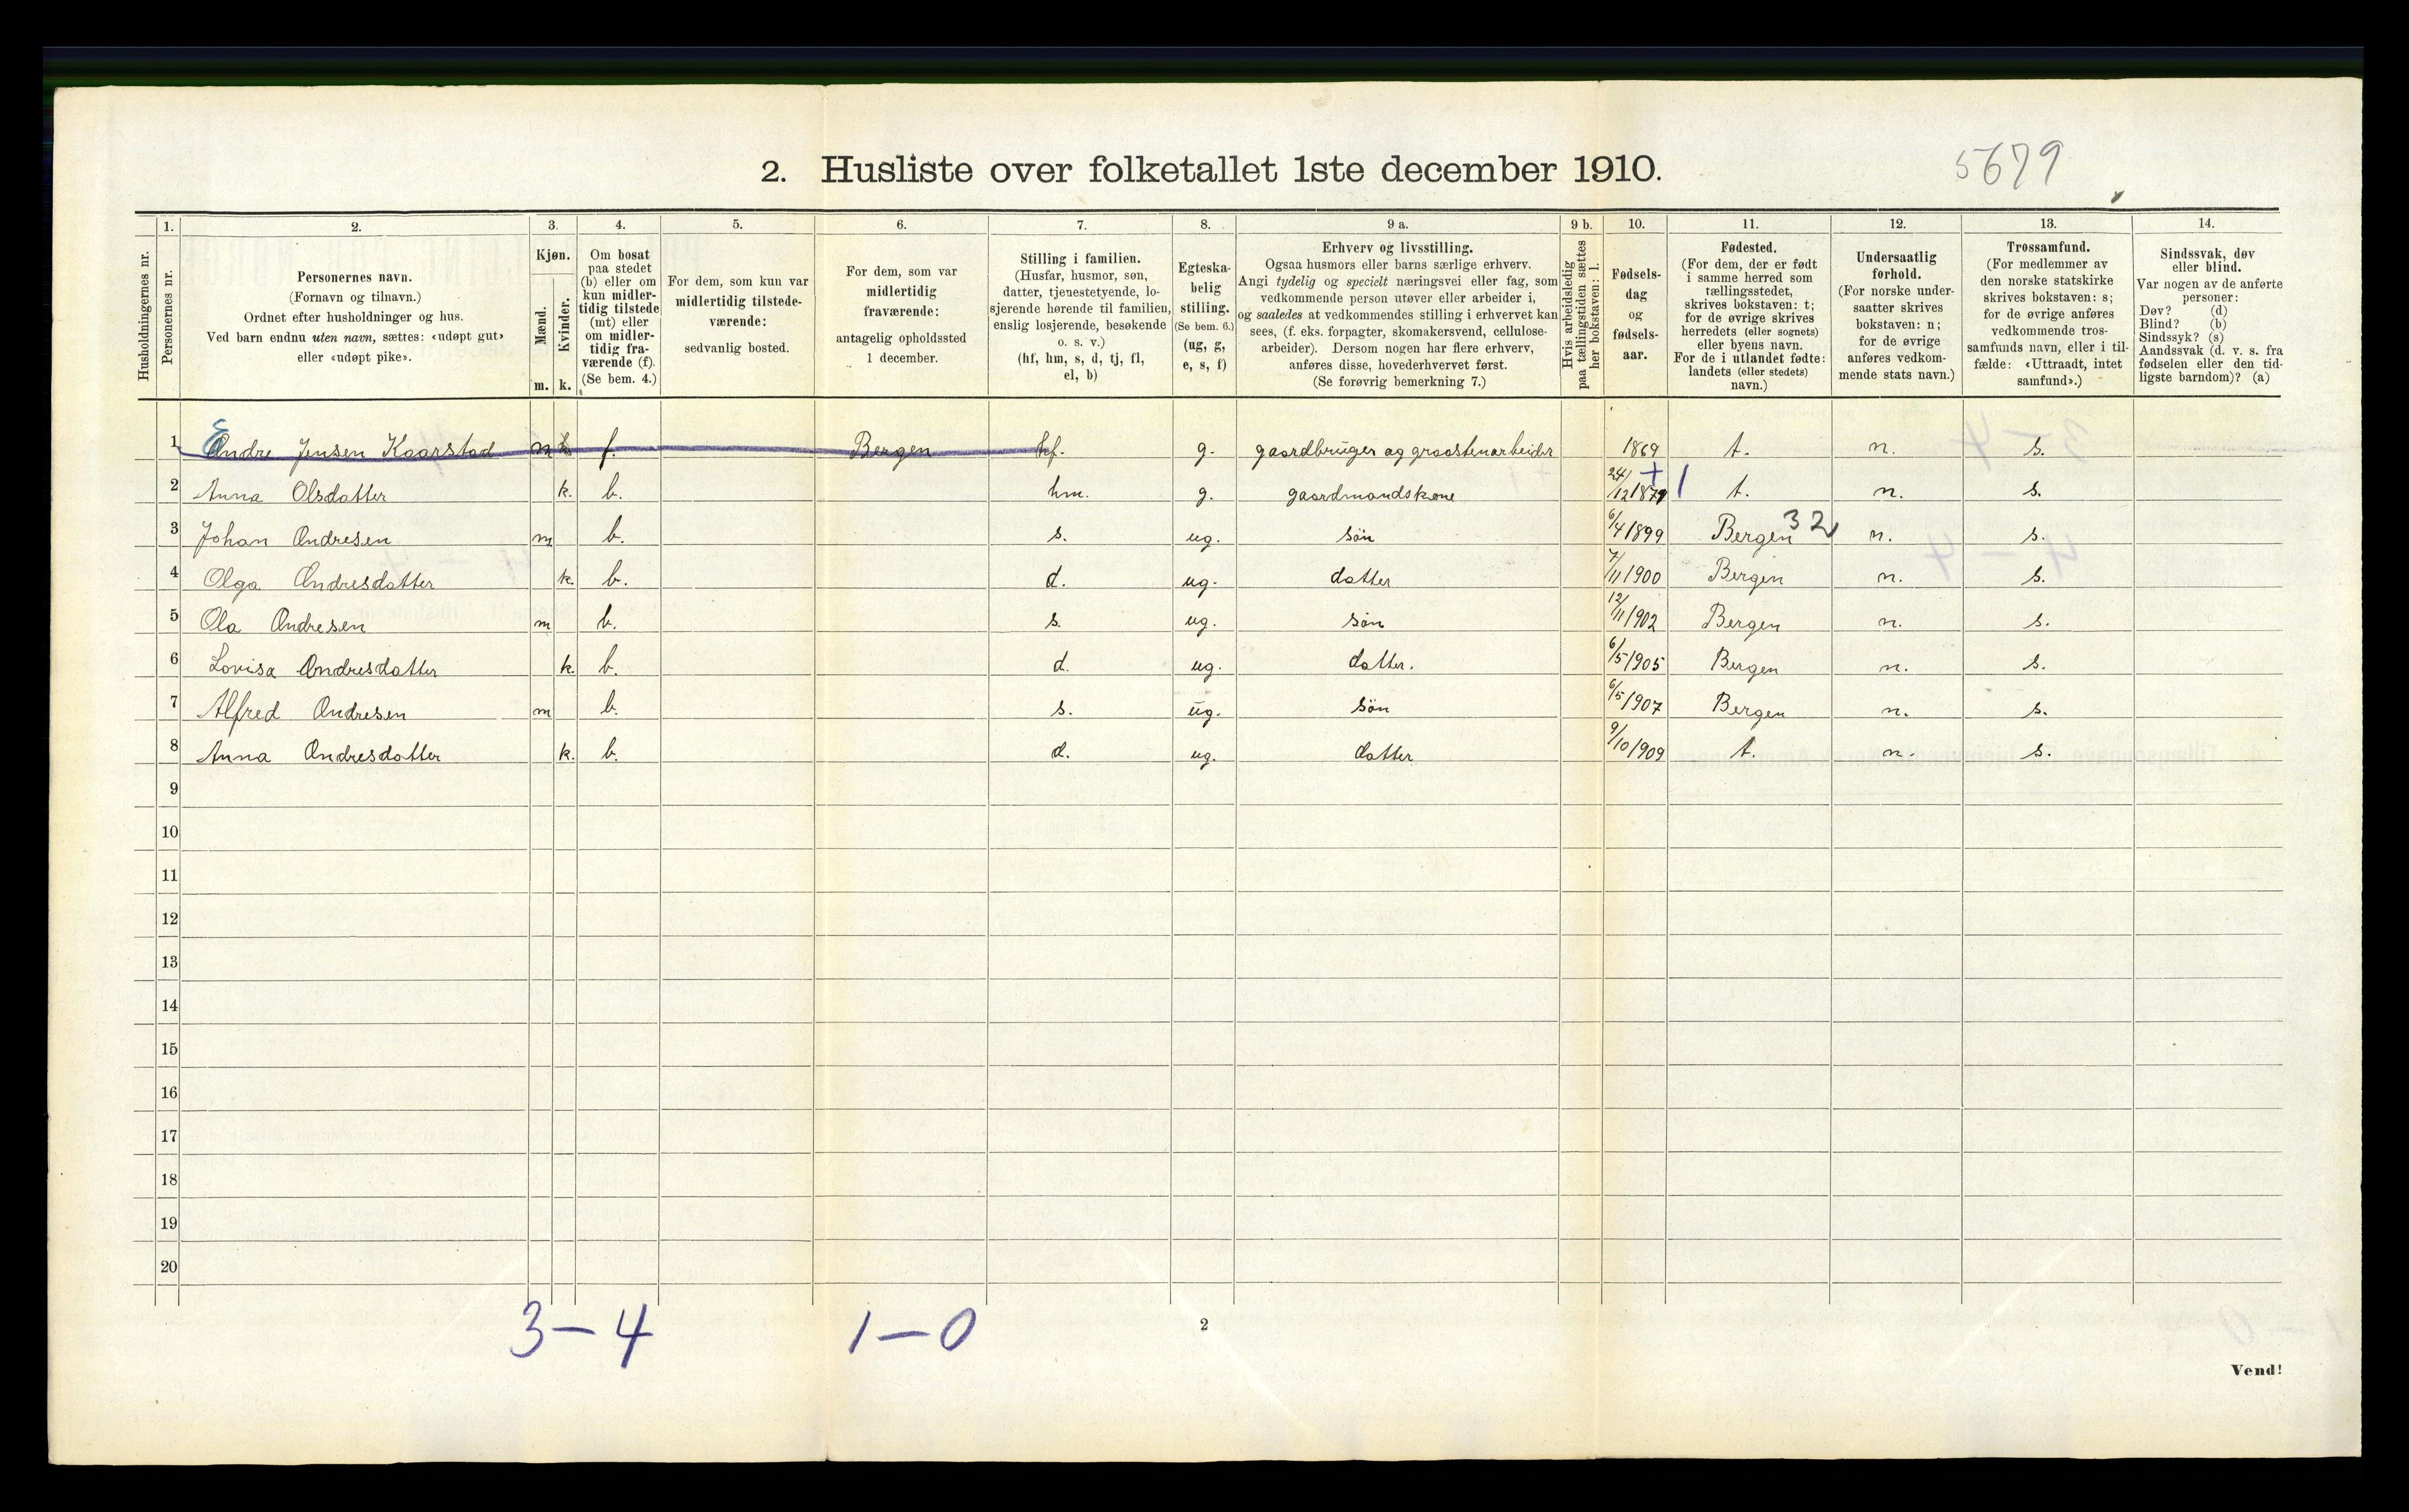 2. Husliste over folketallet 1ste december 1910.
5679
Husholdningernes nr.
1. Personernes nr.
2. Personernes navn. (Fornavn og tilnavn.) Ordnet efter husholdninger og hus. Ved barn endnu uten navn, sættes: «udøpt gut» eller «udøpt pike».
3. Kjøn. Mænd. m. Kvinder. k.
4. Om bosat paa stedet (b) eller om kun midlertidig tilstede (mt) eller om midlertidig fraværende (f). (Se bem. 4.)
5. For dem, som kun var midlertidig tilstedeværende: sedvanlig bosted.
6. For dem, som var midlertidig fraværende: antagelig opholdssted 1 december.
7. Stilling i familien. (Husfar, husmor, søn, datter, tjenestetyende, losjerende hørende til familien, enslig losjerende, besøkende o. s. v.) (hf, hm, s, d, tj, fl, el, b)
8. Egteskabelig stilling. (Se bem. 6.) (ug, g, e, s, f)
9 a. Erhverv og livsstilling. Ogsaa husmors eller barns særlige erhverv. Angi tydelig og specielt næringsvei eller fag, som vedkommende person utøver eller arbeider i, og saaledes at vedkommendes stilling i erhvervet kan sees, (f. eks. forpagter, skomakersvend, cellulosearbeider). Dersom nogen har flere erhverv, anføres disse, hovederhvervet først. (Se forøvrig bemerkning 7.)
9 b. Hvis arbeidsledig paa tællingstiden sættes her bokstaven: l.
10. Fødselsdag og fødselsaar.
11. Fødested. (For dem, der er født i samme herred som tællingsstedet, skrives bokstaven: t; for de øvrige skrives herredets (eller sognets) eller byens navn. For de i utlandet fødte: landets (eller stedets) navn.)
12. Undersaatlig forhold. (For norske undersaatter skrives bokstaven: n; for de øvrige anføres vedkommende stats navn.)
13. Trossamfund. (For medlemmer av den norske statskirke skrives bokstaven: s; for de øvrige anføres vedkommende trossamfunds navn, eller i tilfælde: «Uttraadt, intet samfund».)
14. Sindssvak, døv eller blind. Var nogen av de anførte personer: Døv? (d) Blind? (b) Sindssyk? (s) Aandssvak (d. v. s. fra fødselen eller den tidligste barndom)? (a)
1 Endre Jensen Kaarstad m f. Bergen hf. g. gaardbruger og graastenarbeider 1869 t. n. s.
2 Anna Olsdatter k. b. hm. g. gaardmandskone 24/12 1879 + 1 t. n. s.
3 Johan Andresen m b. s. ug. søn 6/4 1899 Bergen 32 n. s.
4 Olga Andresdatter k. b. d. ug. datter 7/11 1900 Bergen n. s.
5 Ola Andresen m b. s. ug. søn 12/11 1902 Bergen n. s.
6 Lovisa Andresdatter k. b. d. ug. datter. 6/5 1905 Bergen n. s.
7 Alfred Andresen m b. s. ug. søn 6/5 1907 Bergen n. s.
8 Anna Andresdatter k. b. d. ug. datter 9/10 1909 t. n. s.
9
10
11
12
13
14
15
16
17
18
19
20
3 – 4 1 – 0
2
Vend!